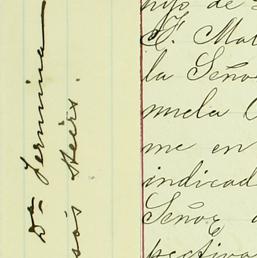 Da Fermina
sós Heirs.
hijo de
F. Mar
la Seño
nuela
me en
indicad
Señor
pectiva